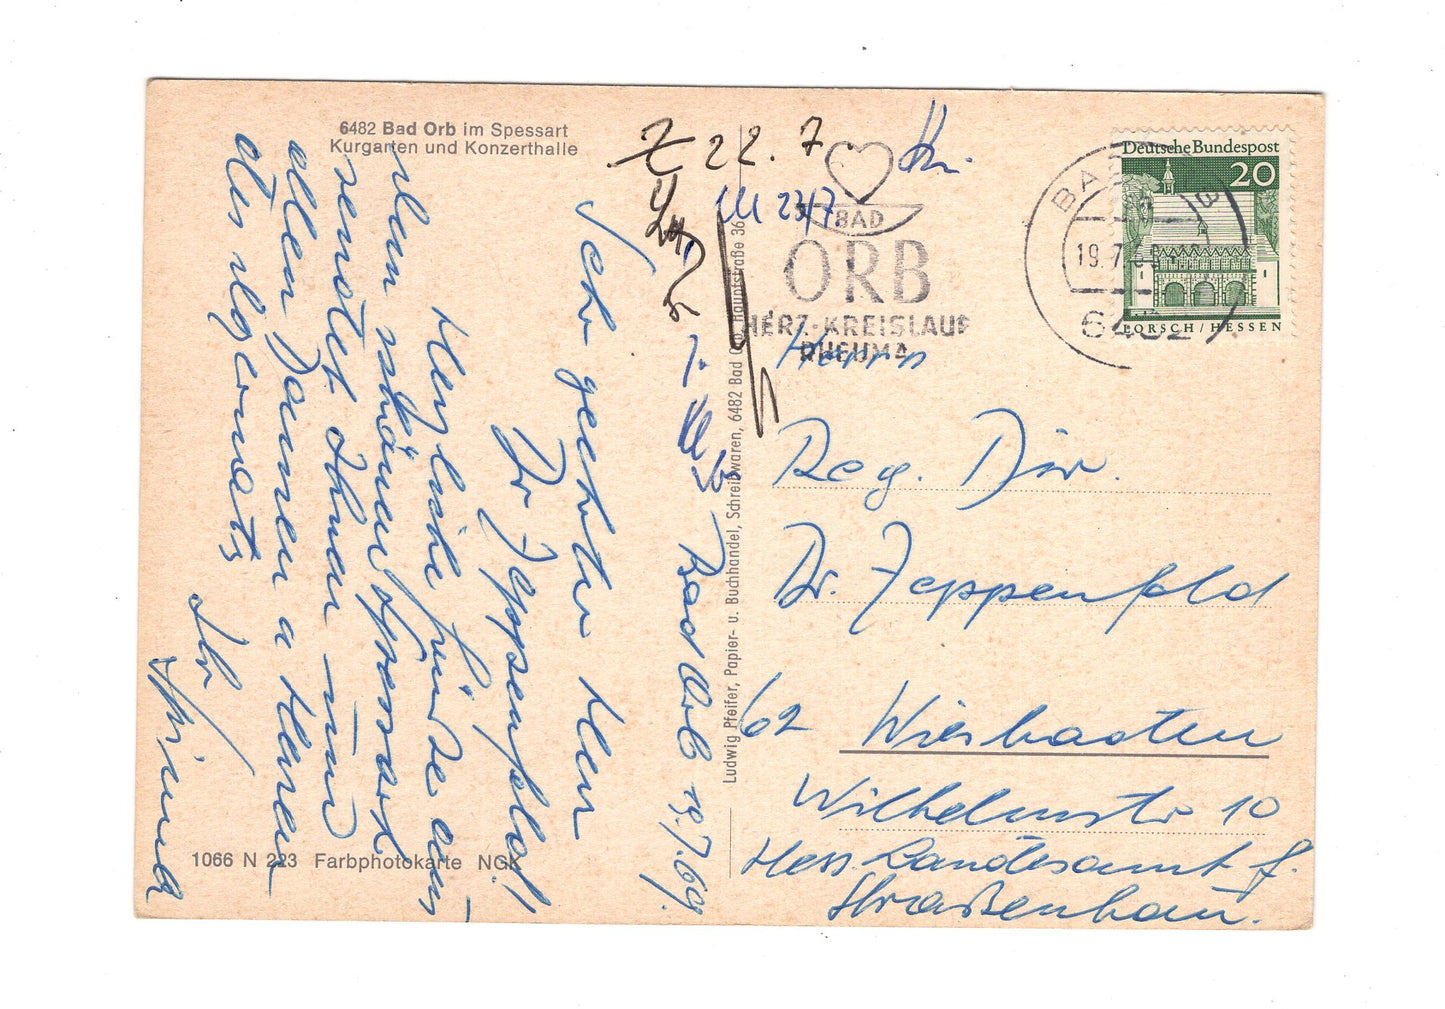 6482 Bad Orb im Spessart
Kurgarten und Konzerthalle
Bad Orb 19.7.69.
Sehr geehrter Herr
Dr. Zeppenfeld!
Herzliche Grüße aus
dem schönen Spessart
sendet Ihnen und
allen Damen u Herren
des
Ihr
1066 N 223 Farbphotokarte NGK
Ludwig Pfeifer, Papier- u. Buchhandel, Schreibwaren, 6482 Bad Orb, Hauptstraße 36
Z 22.7
23/7
BAD
ORB
HERZ-KREISLAUF
RHEUMA
BAD ORB
19.7.69
6482
Deutsche Bundespost
20
LORSCH / HESSEN
Herrn
Reg. Dir.
Dr. Zeppenfeld
62 Wiesbaden
Wilhelmstr 10
Hess. Landesamt f.
Straßenbau.